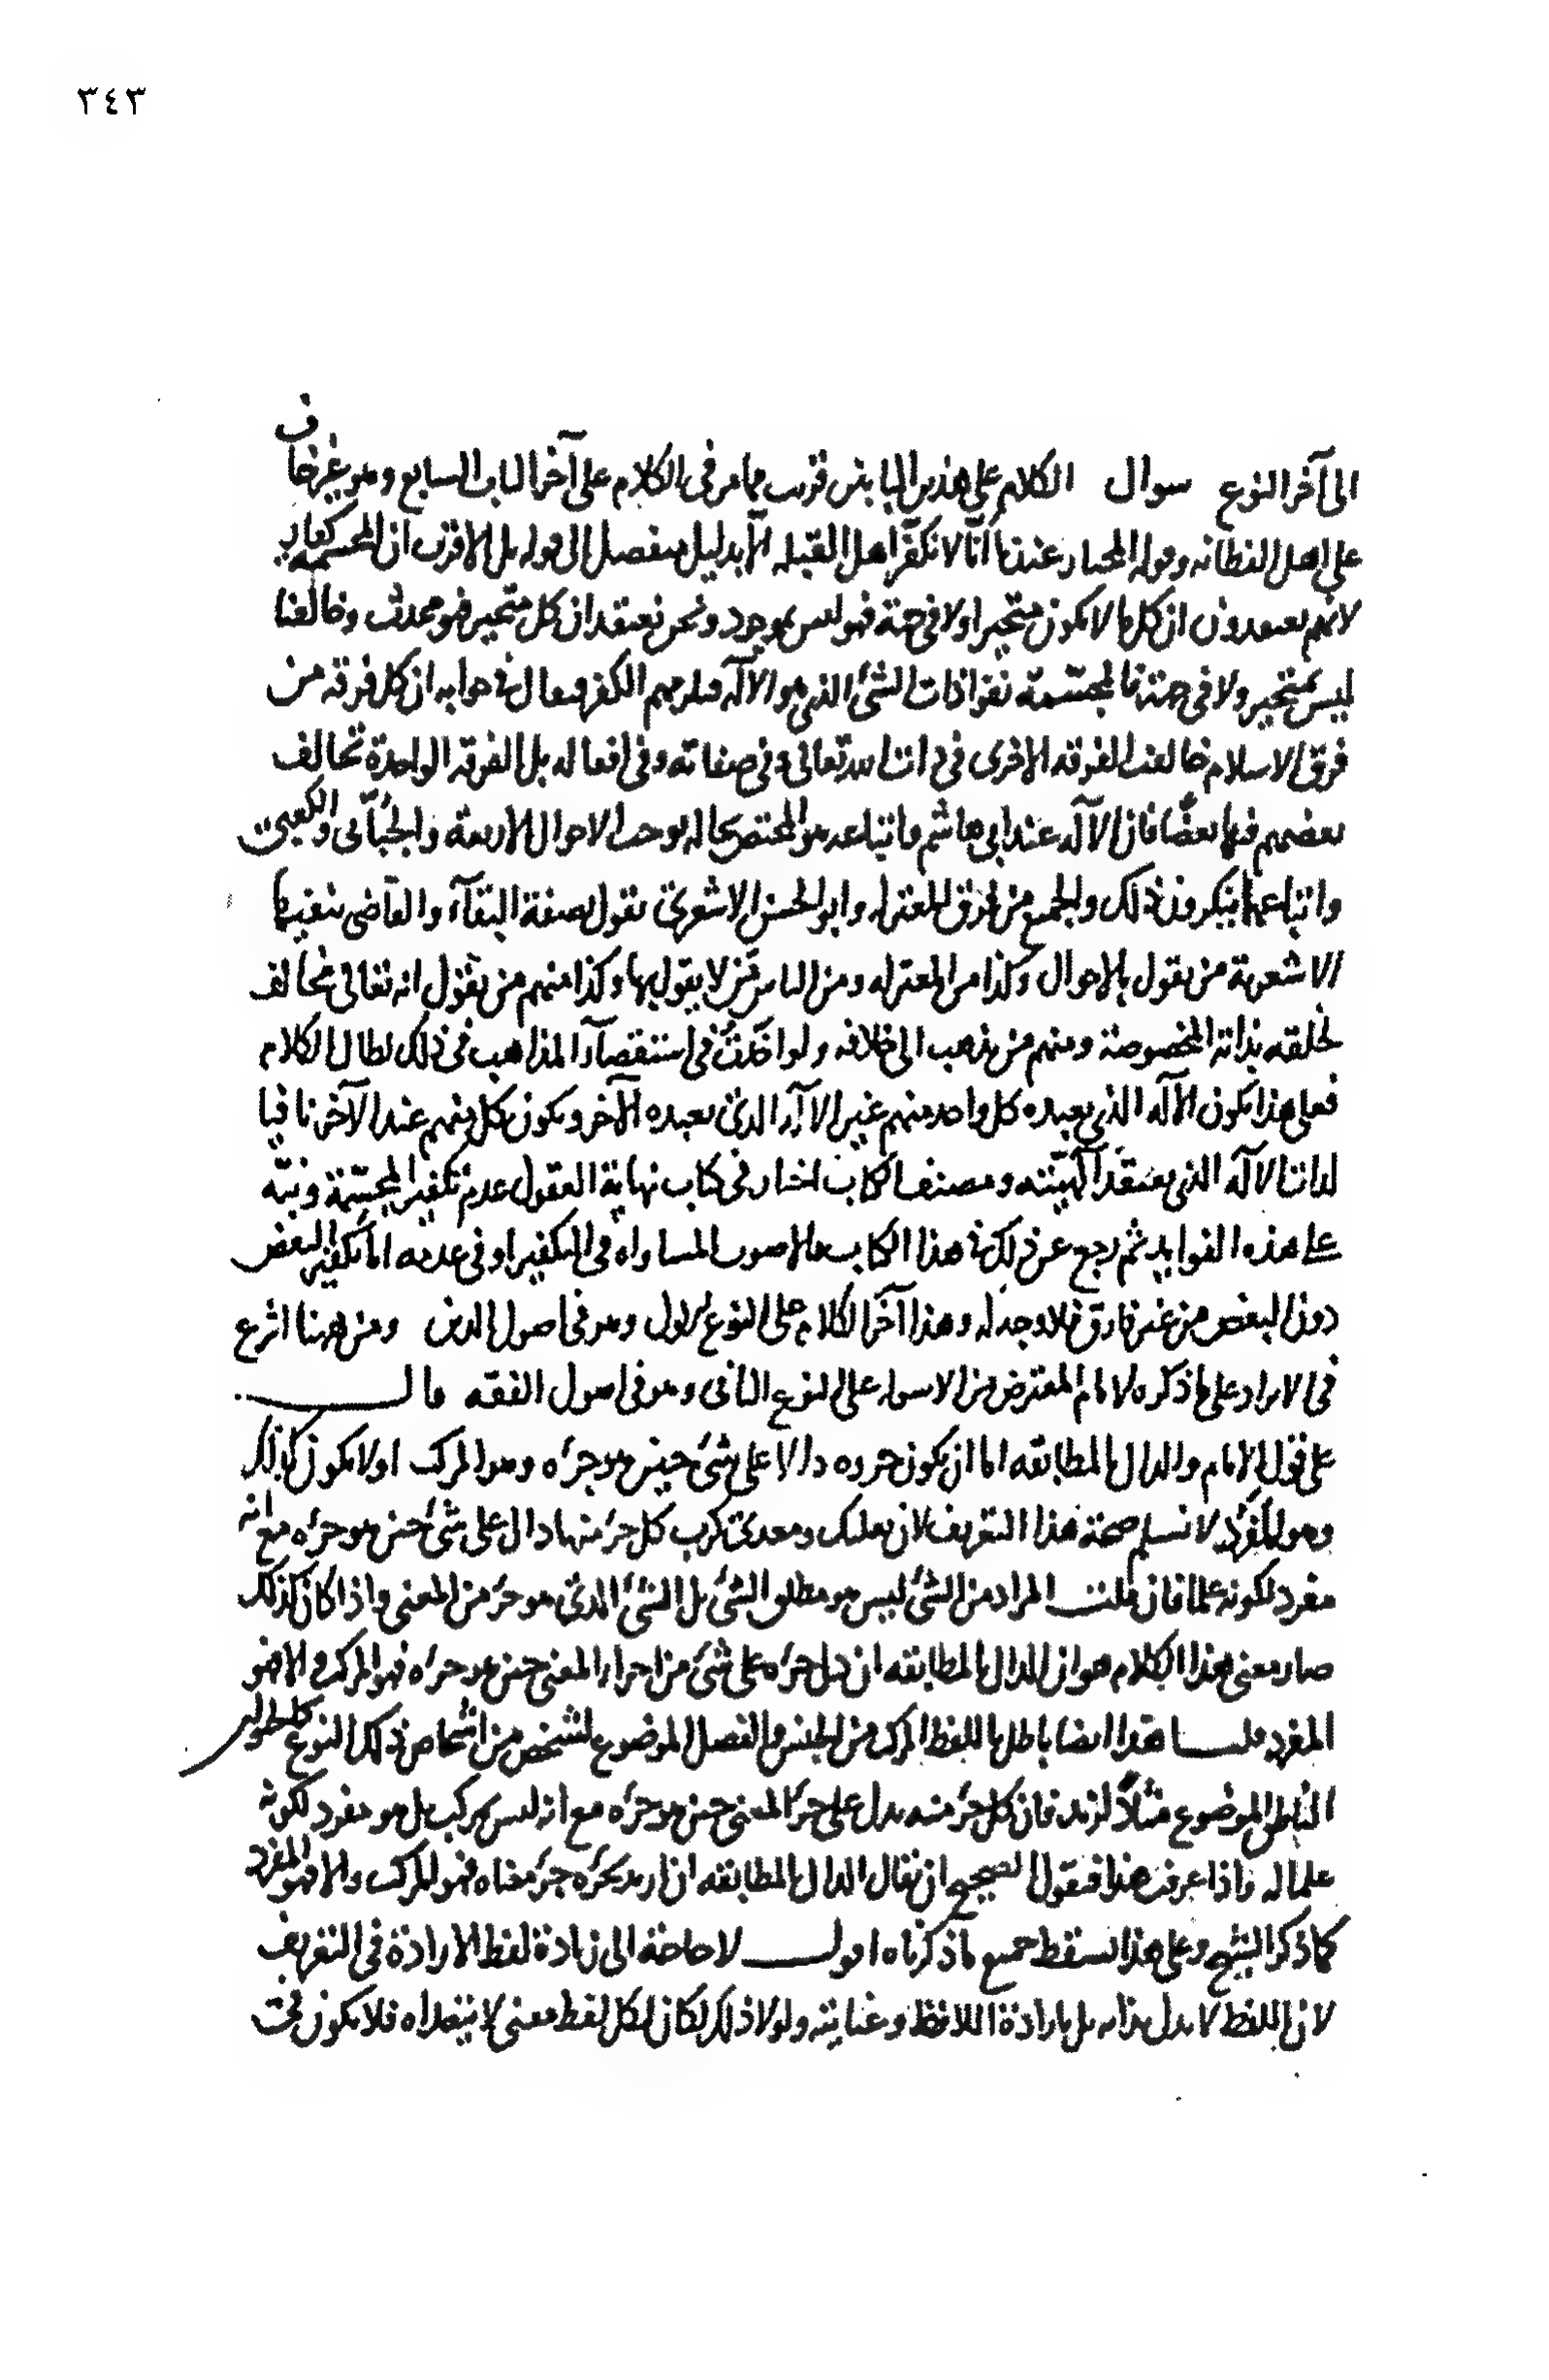 ٣٤٣
الى آخر النوع سوال الكلام على هذين البابين قريب مما مر في الكلام على آخر الباب السابع وهو غير خاف
على اهل الفطانه وقوله المختار عندنا انا لا نكفر اهل القبله الا بدليل منفصل الى قوله بل الاقرب ان المجسمة كفار
لانهم يعتقدون ان كل ما لا يكون متحيزا ولا في جهة فهو ليس بموجود ونحن نعتقد ان كل متحيز فهو محدث وخالقنا
ليس بمتحيز ولا في جهة فالمجسمة نفوا ذات الشئ الذي هو الاله فيلزمهم الكفر فيقال في جوابه ان كل فرقة من
فرق الاسلام خالفت الفرقه الاخرى في ذات الله تعالى وفي صفاته وفي افعاله بل الفرقه الواحدة تخالف
بعضهم فيها بعضا فان الاله عند ابي هاشم واتباعه هو المختص بحاله توجب الاحوال الاربعة والجبائى والكعبى
واتباعهما ينكرون ذلك والجميع من فرق المعتزله وابو الحسن الاشعرى يقول بصفة البقاء والقاضى ينفيها
الاشعرية من يقول بالاحوال وكذا من المعتزله ومن الناس من لا يقول بها وكذا منهم من يقول انه تعالى مخالف
لخلقه بذاته المخصوصة ومنهم من يذهب الى خلافه ولو اخذت في استقصاء المذاهب في ذلك لطال الكلام
فعلى هذا يكون الاله الذي يعبده كل واحد منهم غير الاله الذى يعبده الآخر ويكون كل منهم عند الآخر نافيا
لذات الاله الذي يعتقد آلهيته ومصنف الكتاب اختار في كتاب نهاية العقول عدم تكفير المجسمة ونبه
على هذه الفوايد ثم رجع عن ذلك في هذا الكتاب فالاصوب المساواه في التكفير او في عدمه اما تكفير البعض
دون البعض من غير فارق فلا وجه له وهذا آخر الكلام على النوع الاول وهو في اصول الدين ومن ههنا اشرع
في الايراد على ما ذكره الامام المعترض من الاسوله على النوع الثانى وهو في اصول الفقه قال
على قول الامام والدال بالمطابقه اما ان يكون جزوه دالا على شئ حين هو جزءه وهو المركب اولا يكون كذلك
وهو المفرد لا نسلم صحة هذا التعريف لان بعلبك ومعدى كرب كل جزء منها دال على شئ حين هو جزءه مع انه
مفرد لكونه علما فان قلت المراد من الشئ ليس هو مطلق الشئ بل الشئ الذى هو جزء من المعنى واذا كان كذلك
صار معنى هذا الكلام هو ان الدال بالمطابقه ان دل جزءه على شئ من اجزاء المعنى حين هو جزءه فهو المركب والا فهو
المفرد قلت هذا ايضا باطل باللفظ المركب من الجنس والفصل الموضوع لشخص من اشخاص ذلك النوع كالحيوان
الناطق الموضوع مثلا لزيد فان كل جزء منه يدل على جزء المعنى حين هو جزءه مع انه ليس بمركب بل هو مفرد لكونه
علما له واذا عرفت هذا فنقول الصحيح ان يقال الدال بالمطابقه ان اريد بجزءه جزء معناه فهو المركب والا فهو المفرد
كما ذكر الشيخ وعلى هذا يسقط جميع ما ذكرناه اقول لا حاجة الى زيادة لفظ الارادة في التعريف
لان اللفظ لا يدل بذاته بل بارادة اللافظ وعنايته ولولا ذلك لكان لكل لفظ معنى لا يتعداه فلا يكون تحت